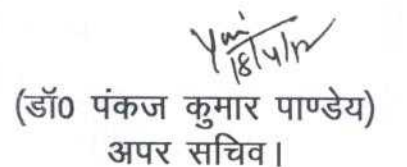 18/4/12
(डॉ0 पंकज कुमार पाण्डेय)
अपर सचिव।